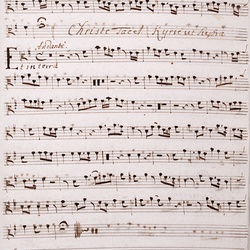 Christe tacet Kyrie ut supra
Andante.
Et in terra